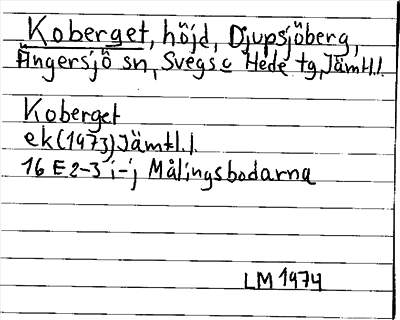 Koberget, höjd, Djupsjöberg,
Ängersjö sn, Svegs o Hede tg, Jämtl.l.
Koberget
ek (1973) Jämtl.l.
16 E 2-3 i-j Målingsbodarna
LM 1974